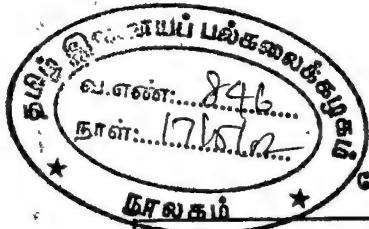 தமிழ் இணையப் பல்கலைக்கழகம்
வ.எண்: 846
நாள்:
நூலகம்